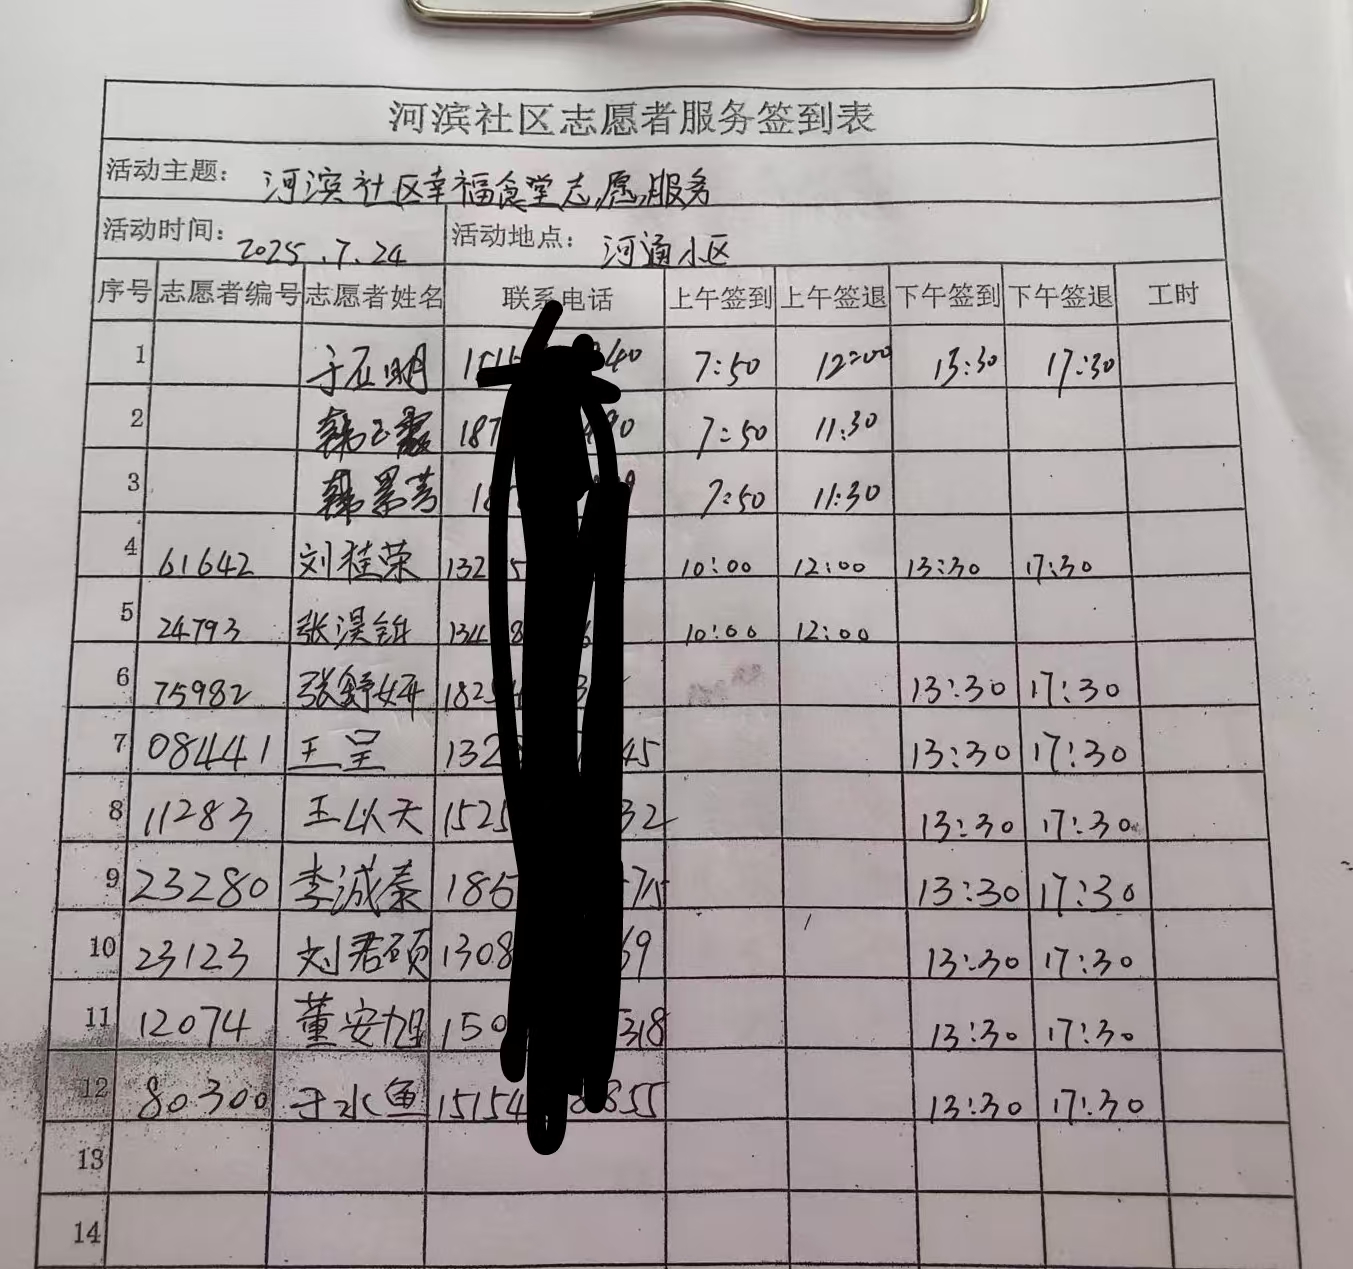 河滨社区志愿者服务签到表
活动主题： 河滨社区幸福食堂志愿服务
活动时间： 2025.7.24 活动地点： 河通小区
序号 志愿者编号 志愿者姓名 联系电话 上午签到 上午签退 下午签到 下午签退 工时
1 于在明 7:50 12:00 13:30 17:30
2 韩玉 187 7:50 11:30
3 韩景芳 7:50 11:30
4 61642 刘桂荣 132 10:00 12:00 13:30 17:30
5 24793 张淏 134 10:00 12:00
6 75982 张舒妍 182 13:30 17:30
7 08441 王呈 132 45 13:30 17:30
8 11283 王以天 1525 32 13:30 17:30
9 23280 李诚泰 185 715 13:30 17:30
10 23123 刘君硕 1308 69 13:30 17:30
11 12074 董安旭 150 318 13:30 17:30
12 80300 于水鱼 15154 855 13:30 17:30
13
14